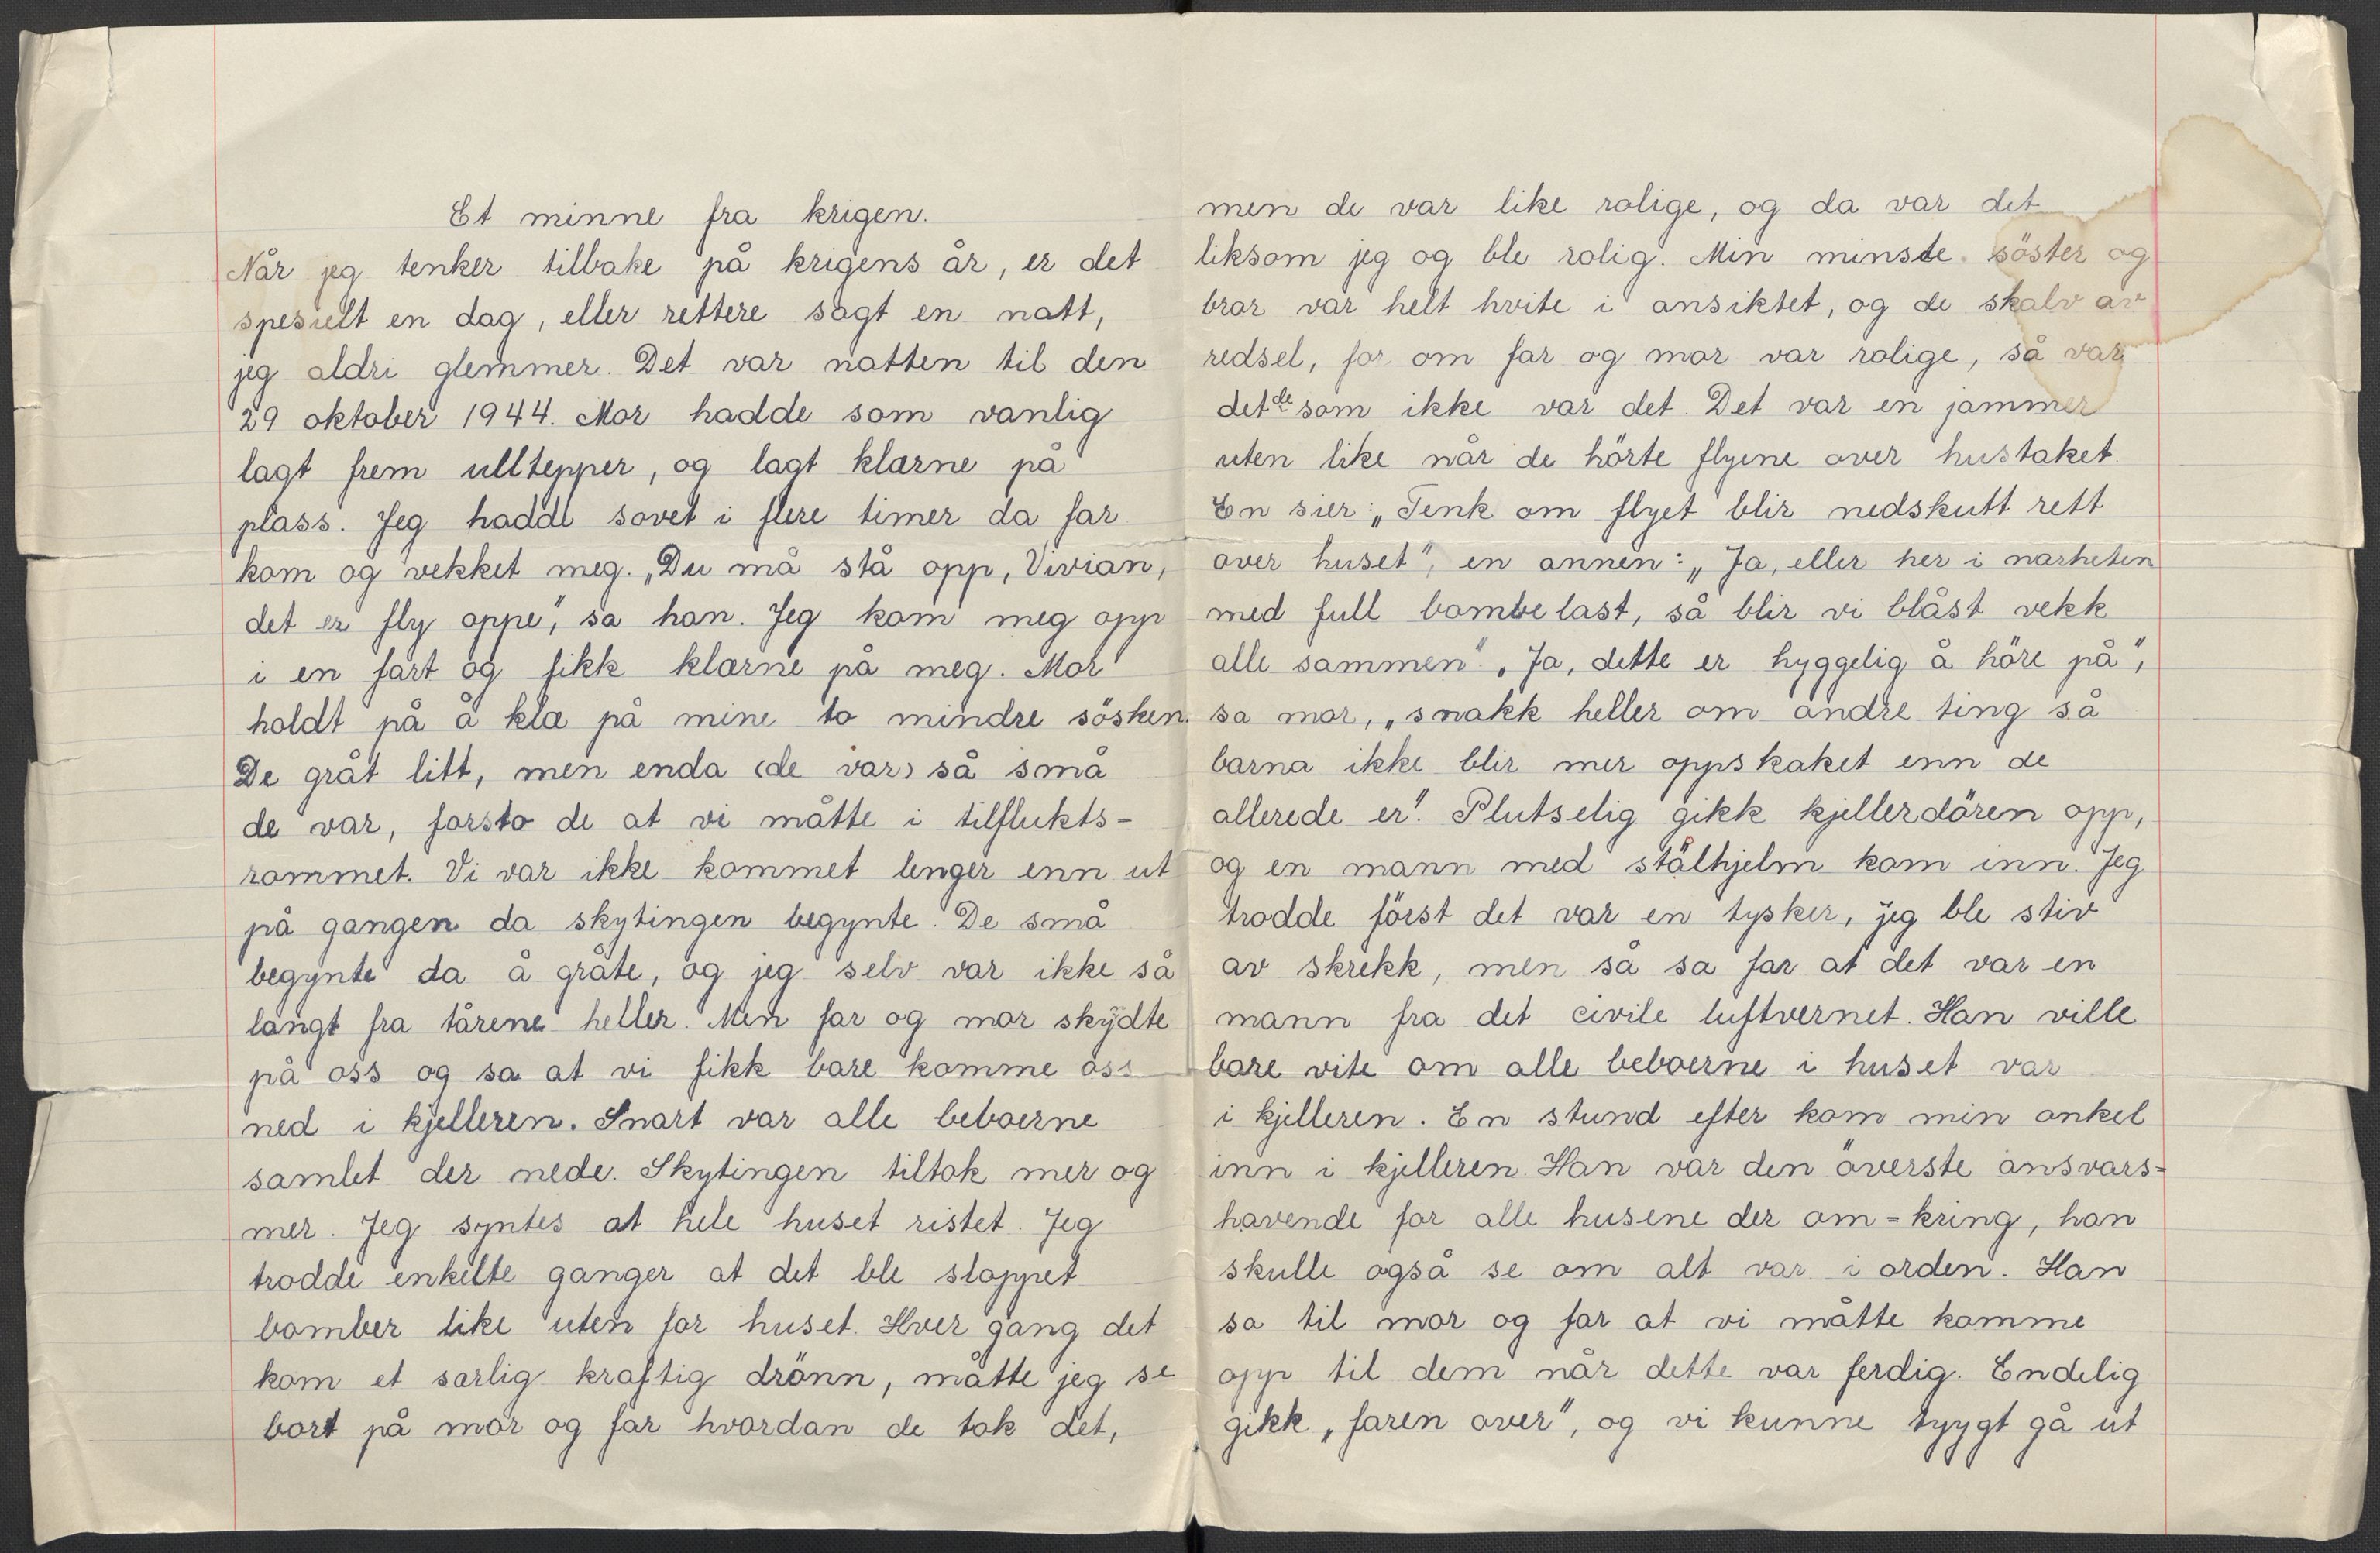 Et minne fra krigen.
Når jeg tenker tilbake på krigens år, er det
spesielt en dag, eller rettere sagt en natt,
jeg aldri glemmer. Det var natten til den
29 oktober 1944. Mor hadde som vanlig
lagt frem ulltepper, og lagt klærne på
plass. Jeg hadde sovet i flere timer da far
kom og vekket meg. „Du må stå opp, Vivian,
det er fly oppe", sa han. Jeg kom meg opp
i en fart og fikk klærne på meg. Mor
holdt på å klæ på mine to mindre sösken.
De gråt litt, men enda (de var) så små
de var, forsto de at vi måtte i tilflukts-
rommet. Vi var ikke kommet lenger enn ut
på gangen da skytingen begynte. De små
begynte da å gråte, og jeg selv var ikke så
langt fra tårene heller. Men far og mor skydte
på oss og sa at vi fikk bare komme oss
ned i kjelleren. Snart var alle beboerne
samlet der nede. Skytingen tiltok mer og
mer. Jeg syntes at hele huset ristet. Jeg
trodde enkelte ganger at det ble sloppet
bomber like uten for huset. Hver gang det
kom et særlig kraftig drönn, måtte jeg se
bort på mor og far hvordan de tok det,
men de var like rolige, og da var det
liksom jeg og ble rolig. Min minste söster og
bror var helt hvite i ansiktet, og de skalv av
redsel, for om far og mor var rolige, så var
det de som ikke var det. Det var en jammer
uten like når de hörte flyene over hustaket.
En sier: „Tenk om flyet blir nedskutt rett
over huset", en annen: „Ja, eller her i nærheten
med full bombelast, så blir vi blåst vekk
alle sammen". „Ja, dette er hyggelig å höre på",
sa mor, „snakk heller om andre ting så
barna ikke blir mer oppskaket enn de
allerede er". Plutselig gikk kjellerdören opp,
og en mann med stålhjelm kom inn. Jeg
trodde först det var en tysker, jeg ble stiv
av skrekk, men så sa far at det var en
mann fra det civile luftvernet. Han ville
bare vite om alle beboerne i huset var
i kjelleren. En stund efter kom min onkel
inn i kjelleren. Han var den överste ansvars=
havende for alle husene der om=kring, han
skulle også se om alt var i orden. Han
sa til mor og far at vi måtte komme
opp til dem når dette var ferdig. Endelig
gikk „faren over", og vi kunne tyygt gå ut